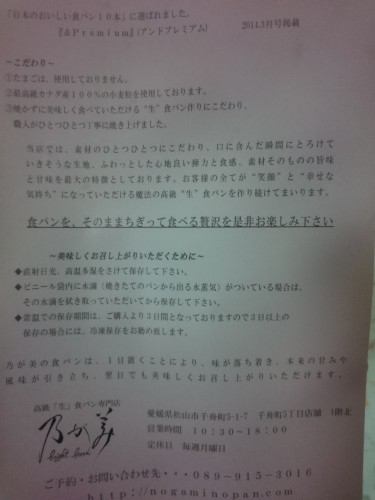 「日本のおいしい食パン10本」に選ばれました。
『&Premium』(アンドプレミアム) 2014.3月号掲載
～こだわり～
①たまごは、使用しておりません。
②最高級カナダ産100%の小麦粉を使用しております。
③焼かずに美味しく食べていただける"生"食パン作りにこだわり、
職人がひとつひとつ丁寧に焼き上げました。
当店では、素材のひとつひとつにこだわり、口に含んだ瞬間にとろけて
いきそうな生地、ふわっとした心地良い弾力と食感、素材そのものの旨味
と甘味を最大の特徴としております。お客様の全てが"笑顔"と"幸せな
気持ち"になっていただける魔法の高級"生"食パンを作り続けてまいります。
食パンを、そのままちぎって食べる贅沢を是非お楽しみ下さい
～美味しくお召し上がりいただくために～
◆直射日光、高温多湿をさけて保存して下さい。
◆ビニール袋内に水滴（焼きたてのパンから出る水蒸気）がついている場合は、
その水滴を拭き取っていただいてから保存して下さい。
◆常温での保存期間は、ご購入より3日間となっておりますので3日以上の
保存の場合には、冷凍保存をお勧め致します。
乃が美の食パンは、1日置くことにより、味が落ち着き、本来の甘みや
風味が引き立ち、翌日でも美味しくお召し上がりいただけます。
高級「生」食パン専門店
乃が美
愛媛県松山市千舟町5-1-7 千舟町5丁目店舗 1階北
営業時間 10:30~18:00
定休日 毎週月曜日
ご予約・お問い合わせ先・・・089-915-3016
http://nogaminopan.com